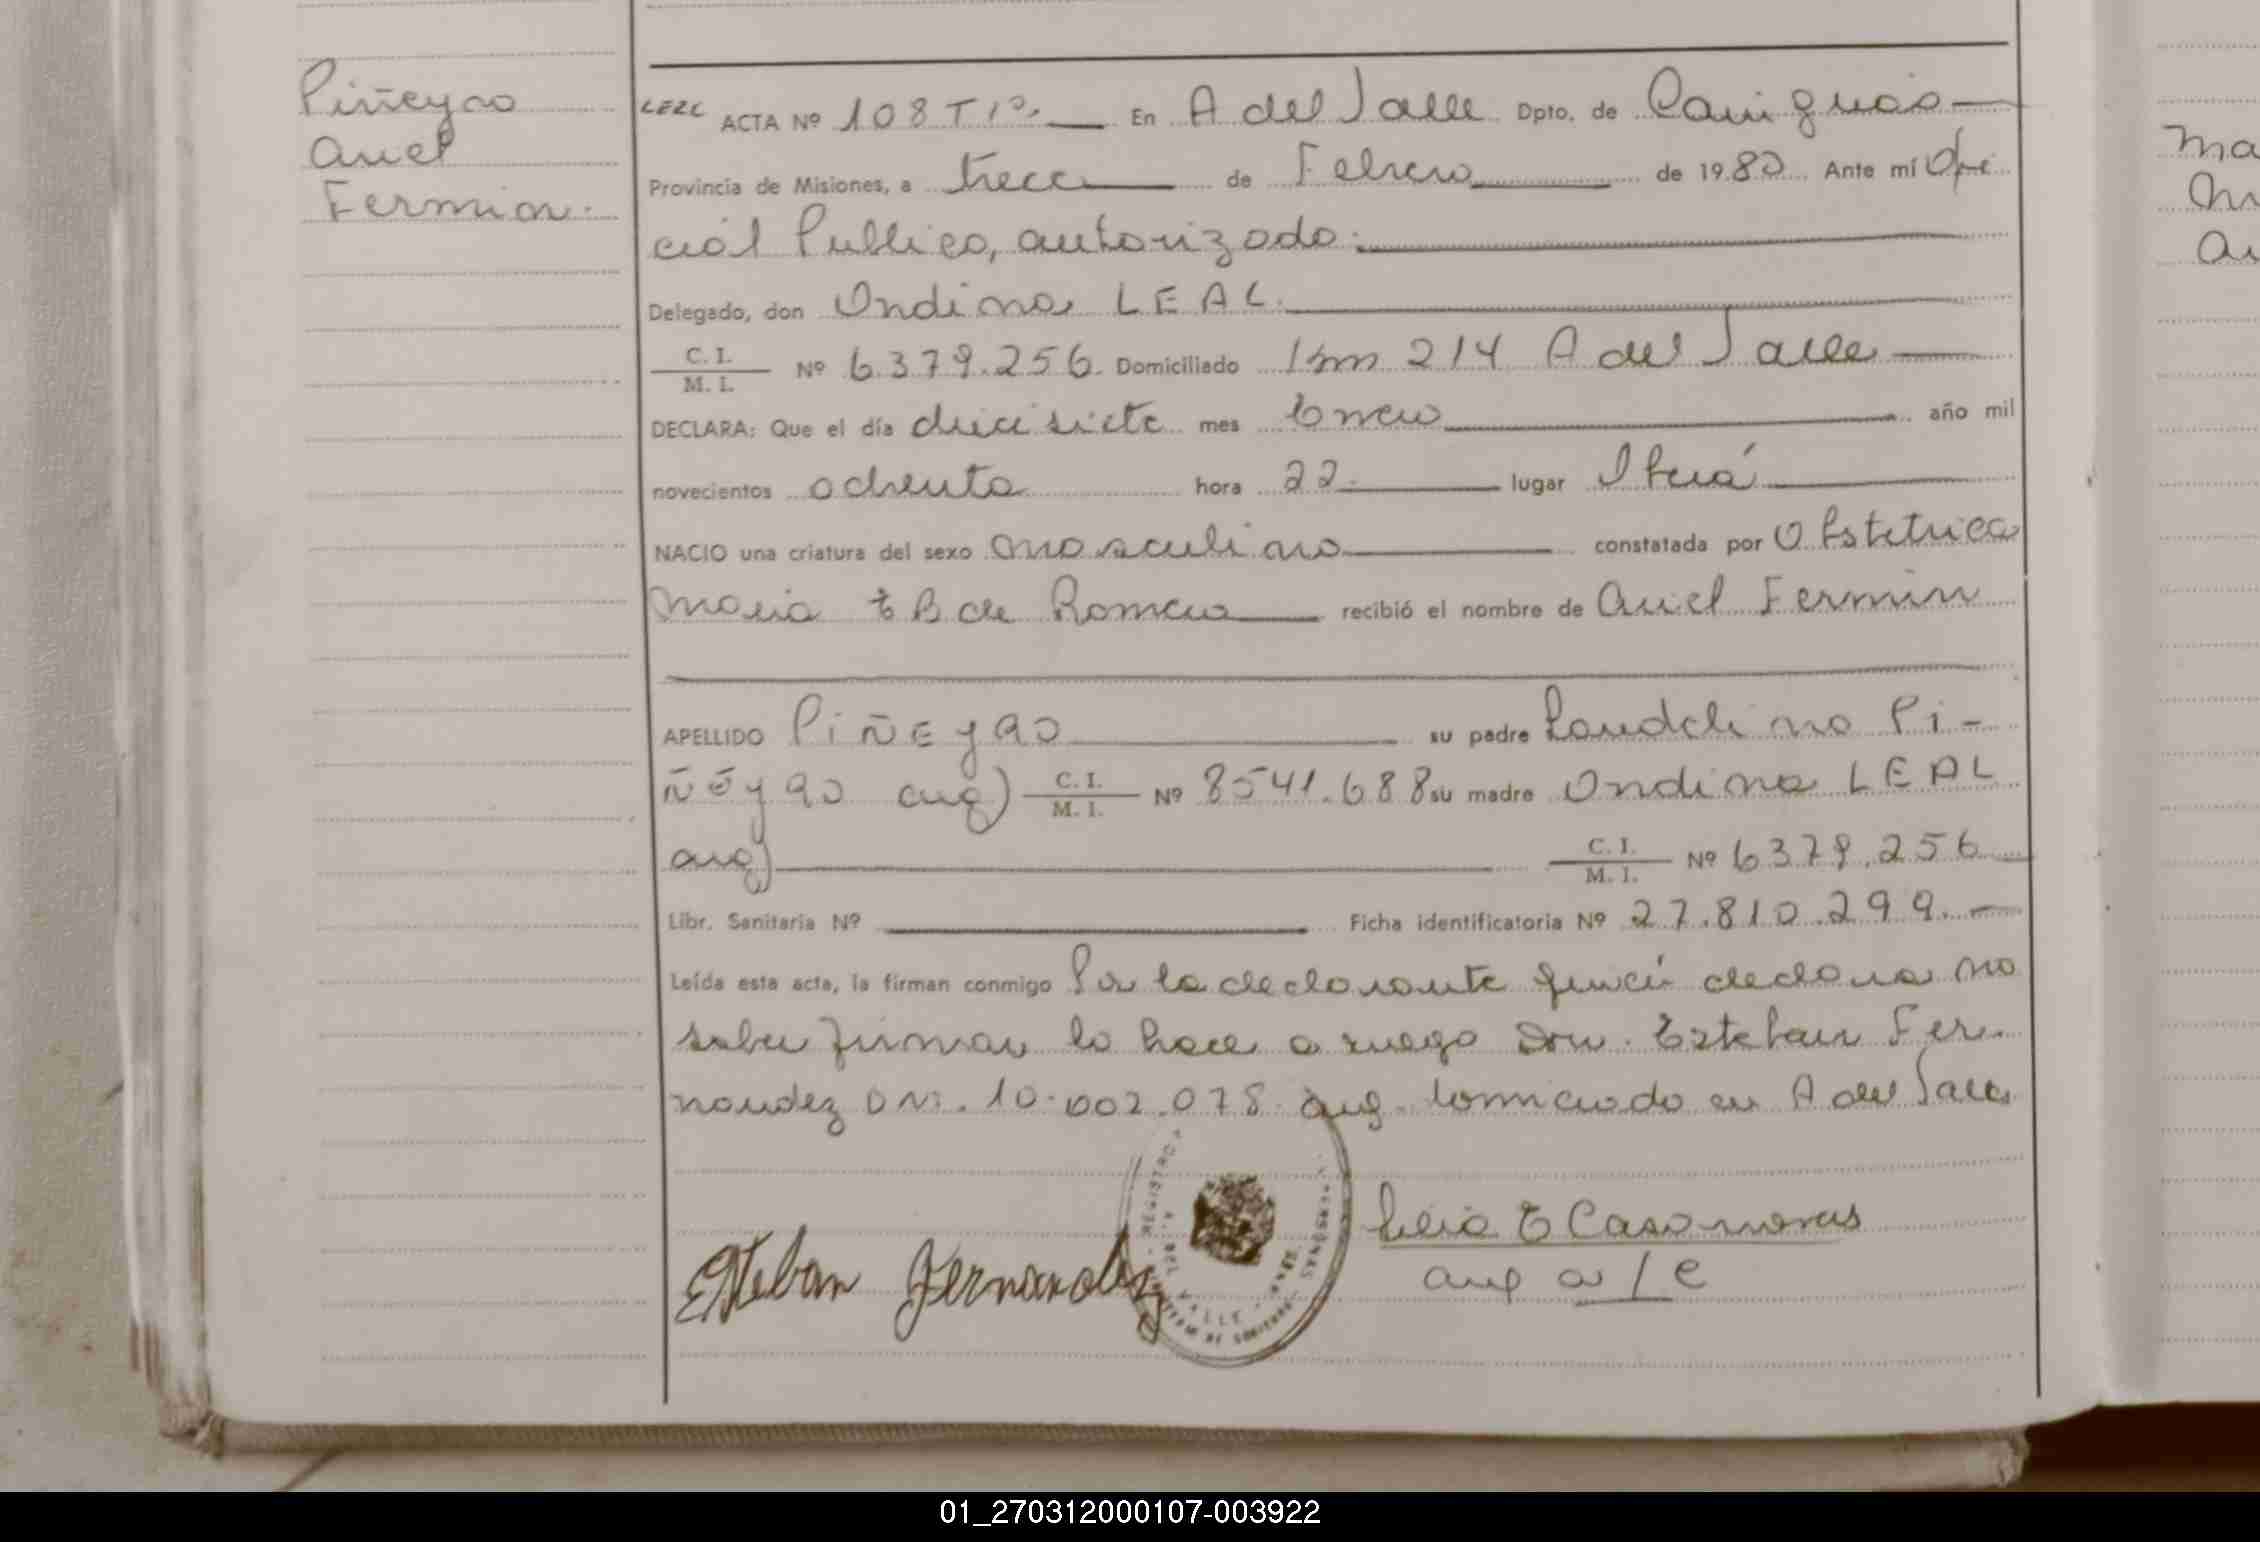 Piñeyro
Auel
Fermin.
LEZC ACTA Nº 108 Tº 1º. En A del Valle Dpto. de Cainguás
Provincia de Misiones, a trece de Febrero de 1980. Ante mí Ofi
cial Publico, autorizado.
Delegado, don Ondina LEAL.
C. I. / M. I. Nº 6.379.256. Domiciliado Km 214 A del Valle
DECLARA: Que el día diecisiete mes Enero año mil
novecientos ochenta hora 22. lugar Oberá
NACIO una criatura del sexo masculino constatada por Obstetrica
Maria E B de Romero recibió el nombre de Auel Fermin
APELLIDO PiÑEyRO su padre Laudeli no Pi-
ñeyro arg) C. I. / M. I. Nº 8541.688 su madre Ondina LEAL
arg) C. I. / M. I. Nº 6379.256
Libr. Sanitaria Nº Ficha identificatoria Nº 27.810.299.
Leída esta acta, la firman conmigo Por la declarante quien declara no
saber firmar lo hace a ruego Don. Esteban Fer-
nandez DNI. 10.002.078 arg. domiciliado en A del Valle
Esteban Fernandez
REGISTRO
PERSONAS
A. DEL VALLE
Casanovas
a/c
Ma
01_270312000107-003922